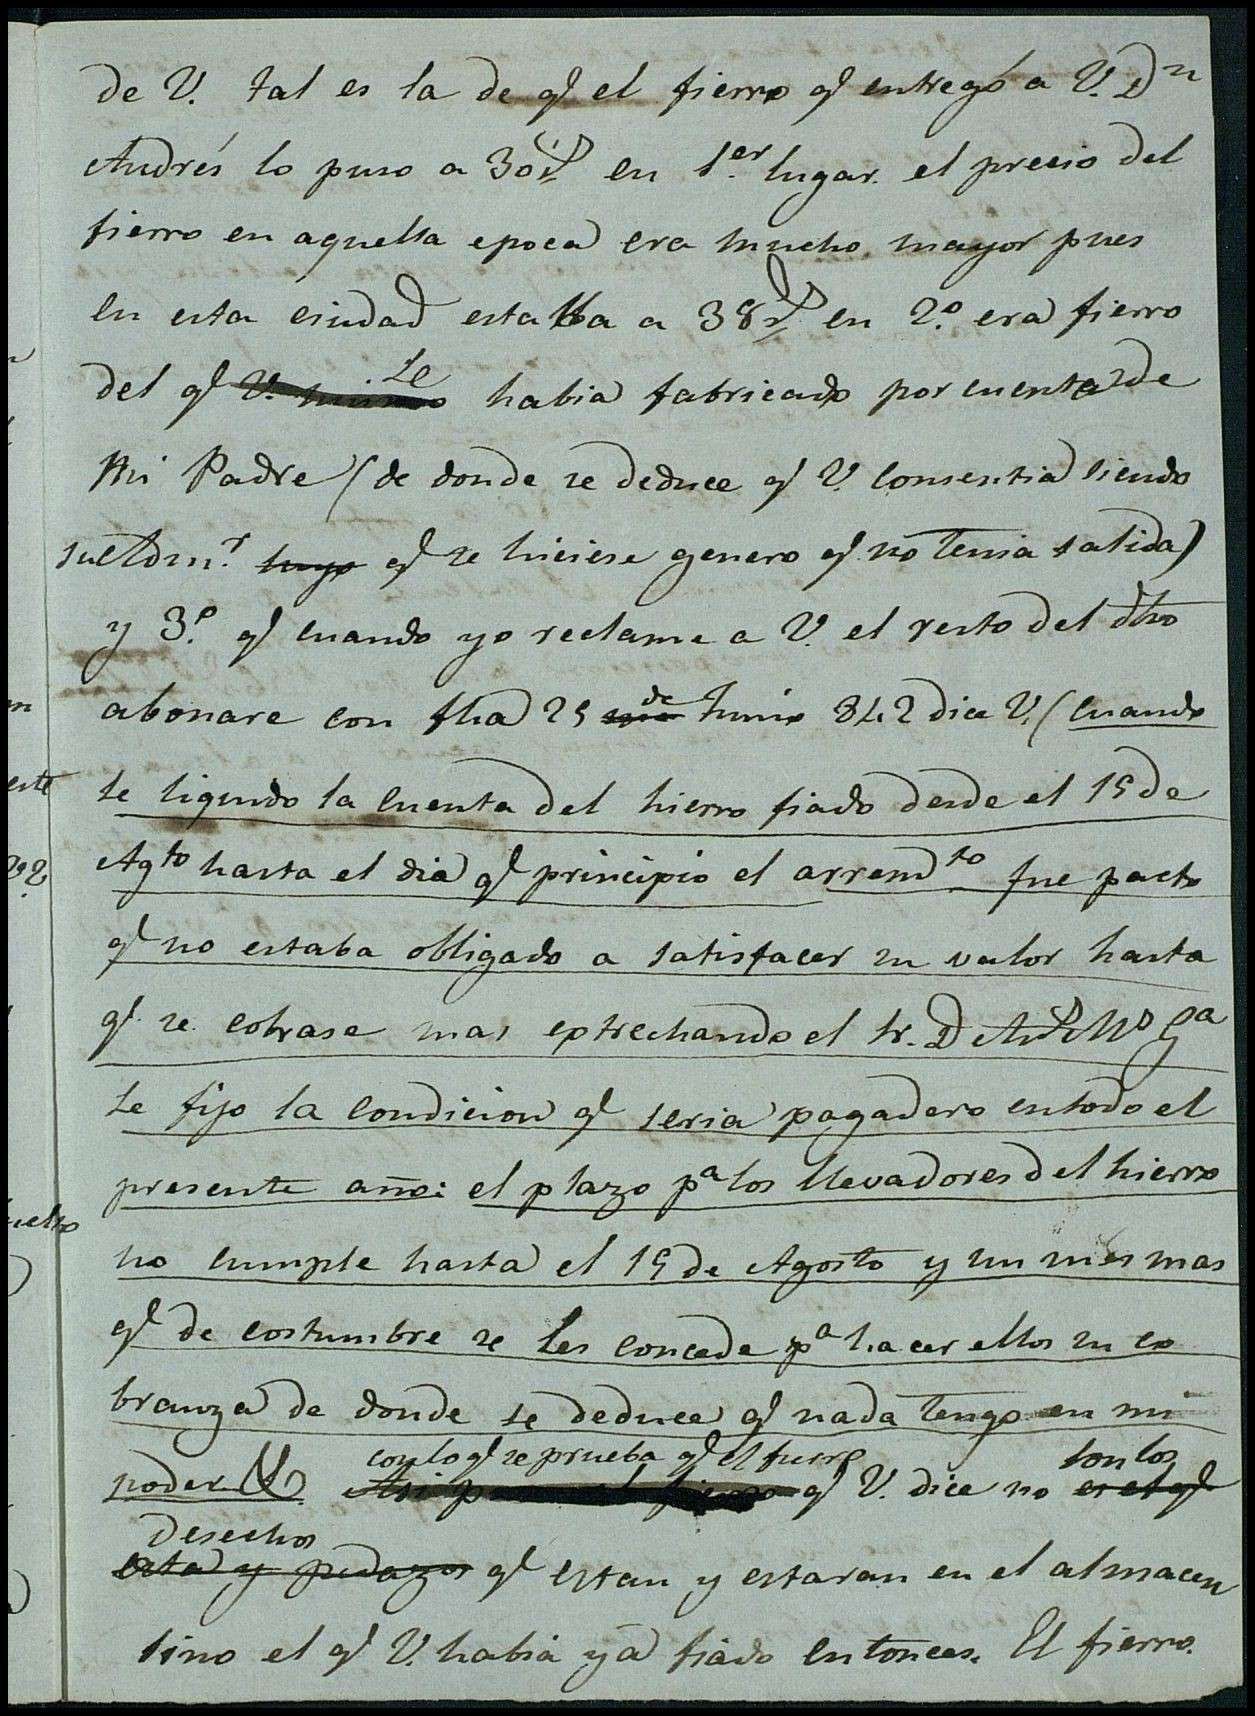 de V. tal es la de q.e el fierro q.e entregó a V. Dn
Andrés lo puso a 30 rs en 1.er lugar el precio del
fierro en aquella epoca era mucho mayor pues
en esta ciudad estaba a 38 rs en 2.o era fierro
se
del q.e V. mismo habia fabricado por cuenta de
Mi Padre (de donde se deduce q.e V. consentia siendo
suel q.e se hiciese genero q.e no tenia salida)
y 3.o q.e cuando yo reclame a V. el resto del dho
de
abonare con fha 25 Junio 842 dice V. (cuando
se liquido la cuenta del hierro fiado desde el 15 de
Agto hasta el dia q.e principio el arrendto fue pacto
q.e no estaba obligado a satisfacer su valor hasta
q.e se cobrase mas extrechando el Sr. D
se fijo la condicion q.e seria pagadero en todo el
presente año: el plazo pa los llevadores del hierro
no cumple hasta el 15 de Agosto y un mes mas
q.e de costumbre se les concede pa hacer ellos su co
branza de donde se deduce q.e nada tengo en mi
con lo q.e se prueba q.e el fierro son los
poder Asi q.e V. dice no es el q.e
desechos
esta y pedazos q.e estan y estaran en el almacen
sino el q.e V. habia ya fiado entonces. El fierro.
n
este
uelto